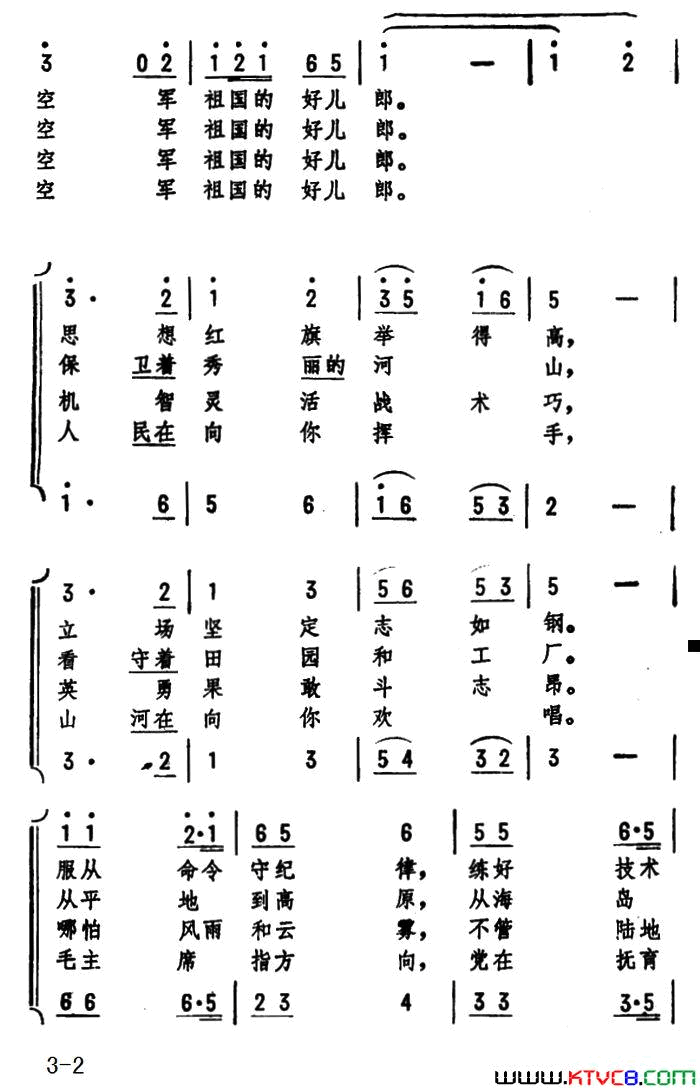 3̇ 0 2̇ | 1̇ 2̇ 1̇ 6 5 | 1̇ — | 1̇ 2̇ |
空 军 祖国的 好儿 郎。
空 军 祖国的 好儿 郎。
空 军 祖国的 好儿 郎。
空 军 祖国的 好儿 郎。
3̇· 2̇ | 1̇ 2̇ | 3̇ 5̇ 1̇ 6 | 5 — |
思 想 红 旗 举 得 高,
保 卫着 秀 丽的 河 山,
机 智 灵 活 战 术 巧,
人 民在 向 你 挥 手,
1̇· 6 | 5 6 | 1̇ 6 5 3 | 2 — |
3· 2 | 1 3 | 5 6 5 3 | 5 — |
立 场 坚 定 志 如 钢。
看 守着 田 园 和 工 厂。
英 勇 果 敢 斗 志 昂。
山 河在 向 你 欢 唱。
3· 2 | 1 3 | 5 4 3 2 | 3 — |
1̇ 1̇ 2̇·1̇ | 6 5 6 | 5 5 6·5 |
服从 命令 守纪 律, 练好 技术
从平 地 到高 原, 从海 岛
哪怕 风雨 和云 雾, 不管 陆地
毛主 席 指方 向, 党在 抚育
6 6 6·5 | 2 3 4 | 3 3 3·5 |
3-2
www.KTVC8.com